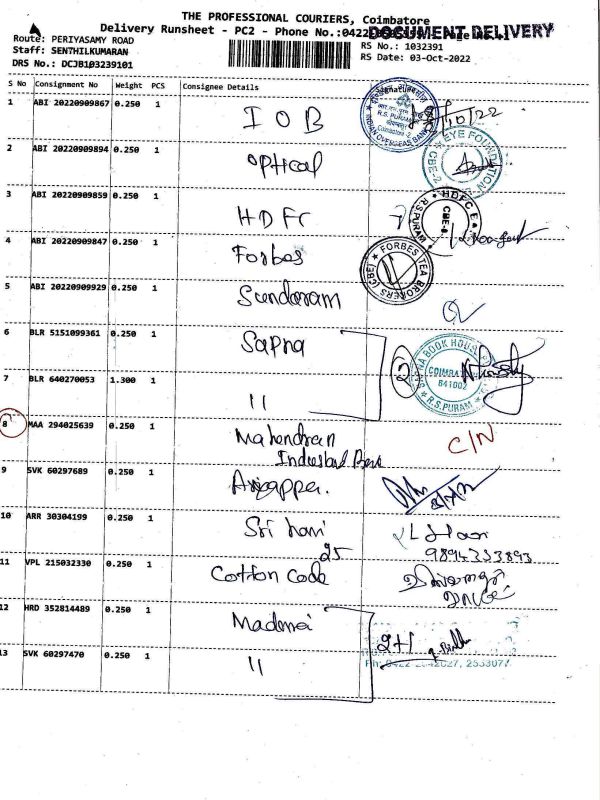 THE PROFESSIONAL COURIERS, Coimbatore
Delivery Runsheet - PC2 - Phone No.:0422
DOCUMENT DELIVERY
Route: PERIYASAMY ROAD
RS No.: 1032391
Staff: SENTHILKUMARAN
RS Date: 03-Oct-2022
DRS No.: DCJB103239101
S No Consignment No Weight PCS Consignee Details Signature
1 ABI 20220909867 0.250 1 IOB
R.S. PURAM
INDIAN OVERSEAS BANK
2 ABI 20220909894 0.250 1 optical
EYE FOUNDATION
CBE-2
3 ABI 20220909859 0.250 1 HDFC
HDFC
R.S.PURAM
4 ABI 20220909847 0.250 1 Forbes
FORBES TEA BROKERS (CBE)
5 ABI 20220909929 0.250 1 Sundaram
6 BLR 5151099361 0.250 1 Sapna
BOOK HOUSE
COIMBATORE
641002
R.S. PURAM
2
7 BLR 640270053 1.300 1 11
8 MAA 294025639 0.250 1 Mahendran C/N
9 SVK 60297689 0.250 1
10 ARR 30304199 0.250 1 Sri hari
25
9894333893
11 VPL 215032330 0.250 1 Cotton Code
12 HRD 352814489 0.250 1
13 SVK 60297470 0.250 1 11